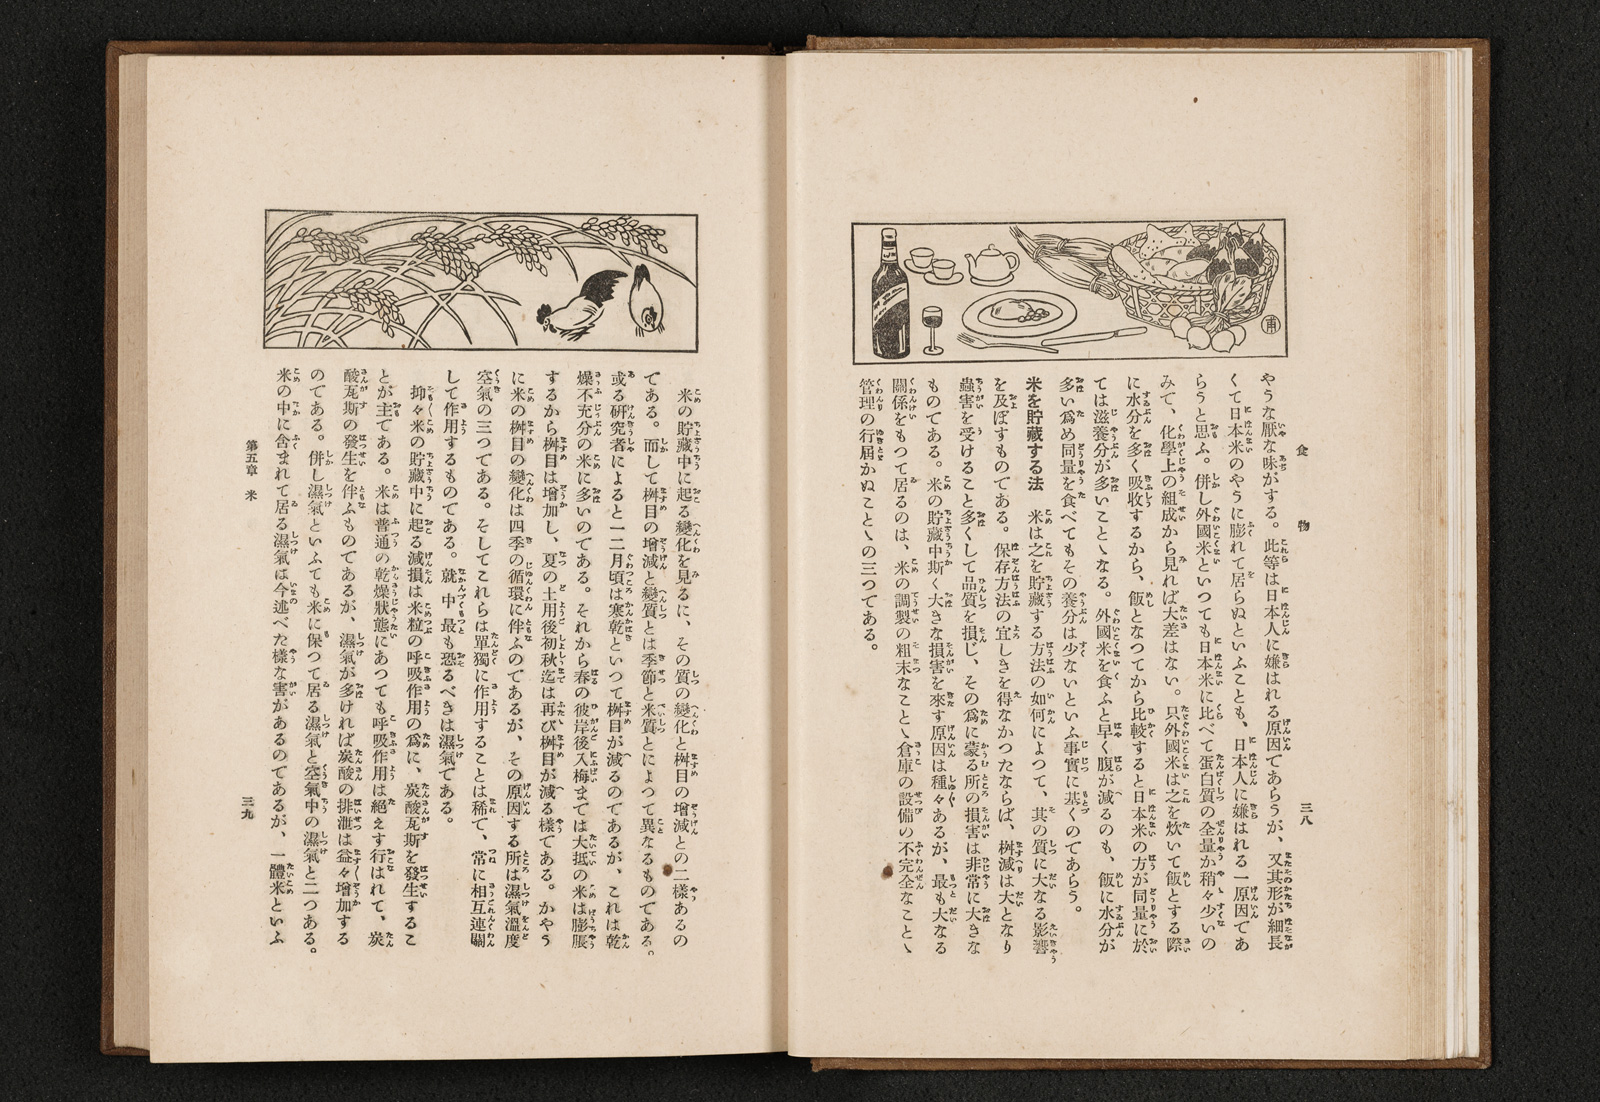 食物
三八
やうな厭な味がする。此等は日本人に嫌はれる原因であらうが、又其形が細長
くて日本米のやうに膨れて居らぬといふことも、日本人に嫌はれる一原因であ
らうと思ふ。併し外國米といつても日本米に比べて蛋白質の全量か稍々少いの
みて、化學上の組成から見れば大差はない。只外國米は之を炊いて飯とする際
に水分を多く吸收するから、飯となつてから比較すると日本米の方が同量に於
ては滋養分が多いことゝなる。外國米を食ふと早く腹が減るのも、飯に水分が
多い爲め同量を食べてもその養分は少ないといふ事實に基くのであらう。
米を貯藏する法　米は之を貯藏する方法の如何によつて、其の質に大なる影響
を及ぼすものである。保存方法の宜しきを得なかつたならば、桝減は大となり
蟲害を受けること多くして品質を損じ、その爲に蒙る所の損害は非常に大きな
ものである。米の貯藏中斯く大きな損害を來す原因は種々あるが、最も大なる
關係をもつて居るのは、米の調製の粗末なことゝ倉庫の設備の不完全なことゝ
管理の行屆かぬことゝの三つである。
米の貯藏中に起る變化を見るに、その質の變化と桝目の增減との二樣あるの
である。而して桝目の增減と變質とは季節と米質とによつて異なるものである。
或る研究者によると一二月頃は寒乾といつて桝目が減るのであるが、これは乾
燥不充分の米に多いのである。それから春の彼岸後入梅までは大抵の米は膨脹
するから桝目は增加し、夏の土用後初秋迄は再び桝目が減る樣である。かやう
に米の桝目の變化は四季の循環に伴ふのであるが、その原因する所は濕氣溫度
空氣の三つである。そしてこれらは單獨に作用することは稀て、常に相互連關
して作用するものてある。就中最も恐るべきは濕氣である。
抑々米の貯藏中に起る減損は米粒の呼吸作用の爲に、炭酸瓦斯を發生するこ
とが主である。米は普通の乾燥狀態にあつても呼吸作用は絕えす行はれて、炭
酸瓦斯の發生を伴ふものてあるが、濕氣が多ければ炭酸の排泄は益々增加する
のである。併し濕氣といふても米に保つて居る濕氣と空氣中の濕氣と二つある。
米の中に含まれて居る濕氣は今述べた樣な害があるのであるが、一體米といふ
第五章　米
三九